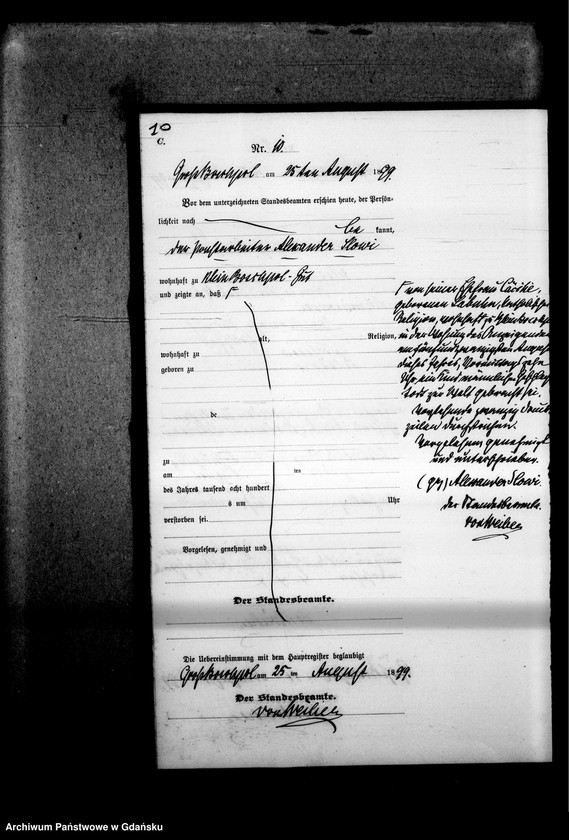 10
C.
Nr. 10.
Groß Boschpol am 25ten August 1899.
Vor dem unterzeichneten Standesbeamten erschien heute, der Persön-
lichkeit nach
be kannt,
der Forstarbeiter Alexander Slowi
wohnhaft zu Klein Boschpol-Gut
und zeigte an, daß
alt, Religion,
wohnhaft zu
geboren zu
de
zu
am ten
des Jahres tausend acht hundert
s um Uhr
verstorben sei.
Vorgelesen, genehmigt und
Der Standesbeamte.
von seiner Ehefrau
geborenen
Religion, wohnhaft
in der Wohnung des Anzeigenden
am fünfundzwanzigsten August
dieses Jahres, Vormittags
Uhr, ein Kind männlichen Geschlechts
todt zur Welt gebracht sei.
Vorstehende zwanzig Druck
zeilen durchstrichen.
Vorgelesen, genehmigt
und unterschrieben.
(gez) Alexander Slowi.
der Standesbeamte.
Die Uebereinstimmung mit dem Hauptregister beglaubigt
Groß Boschpol am 25 ten August 1899.
Der Standesbeamte.
Archiwum Państwowe w Gdańsku